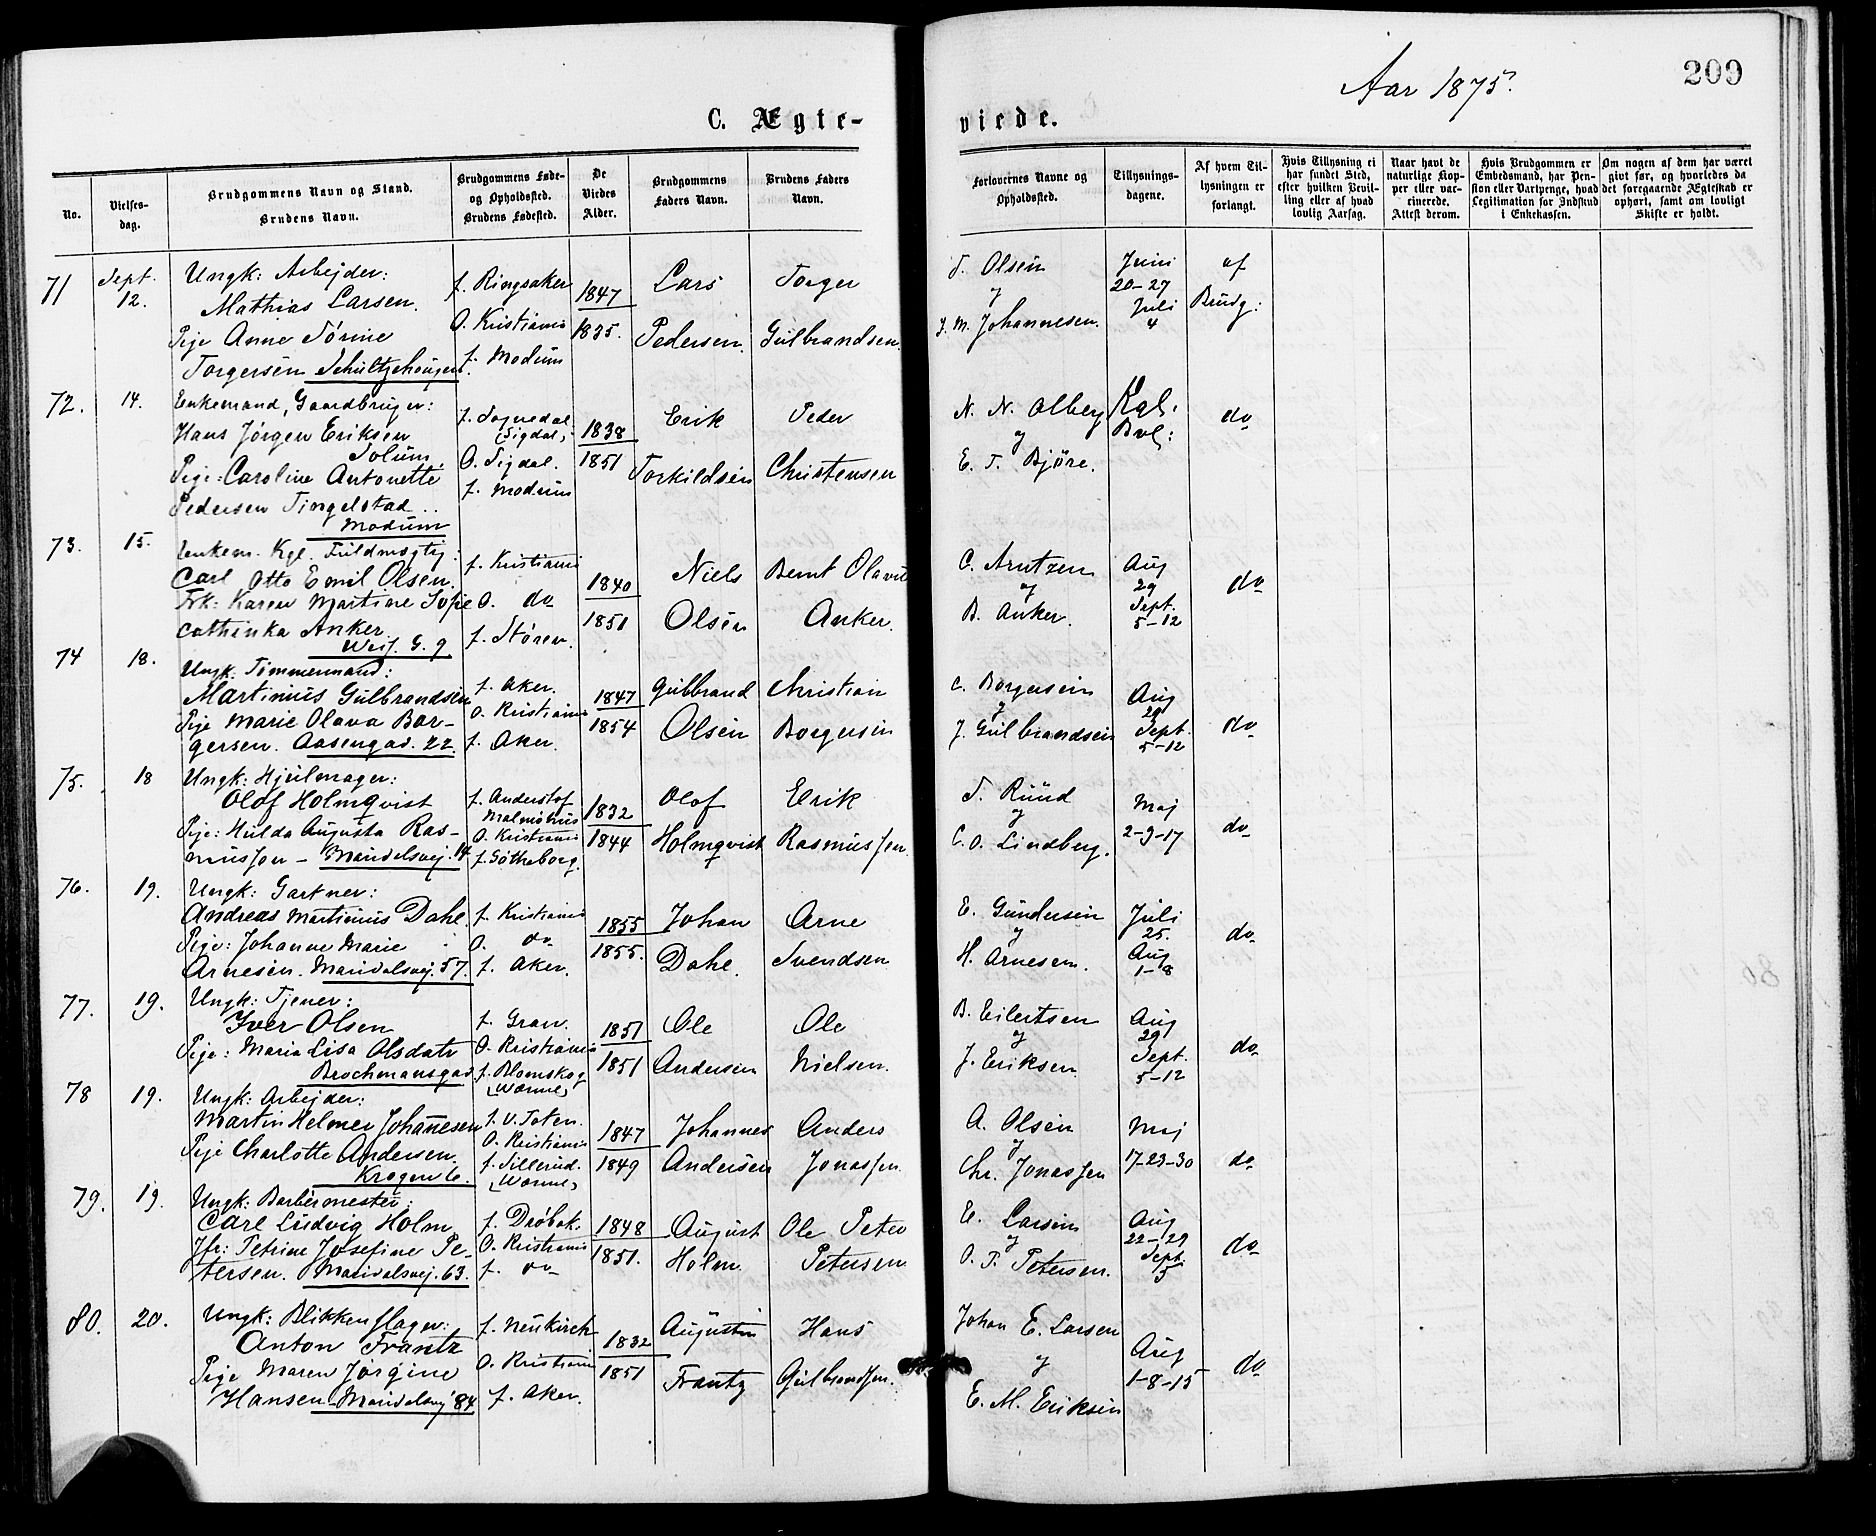 Aar 1875.
209
C. Ægte-
viede.
No.
Vielses-
dag.
Brudgommens Navn og Stand.
Brudens Navn.
Brudgommens Føde-
og Opholdssted.
Brudens Fødested.
De
Viedes
Alder.
Brudgommens
Faders Navn.
Brudens Faders
Navn.
Forlovernes Navne og
Opholdssted.
Tillysnings-
dagene.
Af hvem Til-
lysningen er
forlangt.
Hvis Tillysning ei
har fundet Sted,
efter hvilken Bevil-
ling eller af hvad
lovlig Aarsag.
Naar havt de
naturlige Kop-
per eller vac-
cinerede.
Attest derom.
Hvis Brudgommen er
Embedsmand, har Pen-
sion eller Vartpenge, hvad
Legitimation for Indskud
i Enkekassen.
Om nogen af dem har været
givt før, og hvorledes da
det foregaaende Ægteskab er
ophørt, samt om lovligt
Skifte er holdt.
71 Sept. 12.
Ungk: Arbejder:
Mathias Larsen.
Pige Anne Törine
Torgersen Schultzehougen
f. Ringsaker
O. Kristiania
f. Modum
1847
1835.
Lars
Pedersen.
Torger
Gulbrandsen.
T. Olsen
og
J. M. Johannesen.
Juni
20-27
Juli
4
af
Brudg:
72. 14.
Enkemand, Gaardbruger:
Hans Jörgen Eriksen
Solum
Pige: Caroline Antonette
Pedersen Tingelstad
Modum
f. Sognedal
(Sigdal)
O. Sigdal.
f. Modum
1838
1851
Erik
Torkildsen
Peder
Christensen
N. N. Olberg
og
E. T. Björe.
Kgl.
Bvl:
do
73. 15.
Enkem. Kgl. Fuldmægtig:
Carl Otto Emil Olsen.
Frk: Karen Martine Sofie
Cathinka Anker
Wesf. G. 9
f. Kristiania
O. do
f. Stören.
1840
1851
Niels
Olsen
Bernt Olavus
Anker.
C. Arntzen
og
B. Anker.
Aug
29
Sept.
5-12
do
74 18.
Ungk: Tömmermand:
Martinius Gulbrandsen
Pige Marie Olava Bor-
gersen. Aasengad. 22.
f. Aker.
O. Kristiania
f. Aker.
1847
1854
Gulbrand
Olsen
Christian
Borgersen
C. Borgersen
og
J. Gulbrandsen
Aug
29
Sept.
5-12
do
75. 18
Ungk: Hjulmager:
Olof Holmqvist
Pige: Hulda Augusta Ras-
mussen - Maridalsvej. 14
f. Anderstof
Malmöhus
O. Kristiania
f. Götheborg.
1832
1844
Olof
Holmqvist
Erik
Rasmussen.
T. Ruud
og
C. O. Lindberg.
Maj
2-9-17
do
76. 19.
Ungk: Gartner:
Andreas Martinius Dahl.
Pige: Johanne Marie
Arnesen. Maridalsvej. 57.
f. Kristiania
O. do
f. Aker.
1855
1855.
Johan
Dahl.
Arne
Svendsen
E. Gundersen
og
H. Arnesen.
Juli
25.
Aug
1-8
do
77. 19.
Ungk: Tjener:
Iver Olsen
Pige: Maria Lisa Olsdatr
Brochmansgad
f. Gran.
O. Kristiania
f. Blomskog
(Warml)
1851
1851
Ole
Andersen
Ole
Nielsen.
B. Eilertsen
og
J. Eriksen
Aug
29
Sept.
5-12
do
78 19.
Ungk: Arbejder:
Martin Helmer Johannesen
Pige Charlotte Andersen.
Krogen 6.
f. V. Toten.
O. Kristiania
f. Sillerud.
(Warml)
1847
1849
Johannes
Andersen
Anders
Jonassen
A. Olsen
og
Chr. Jonassen
Maj
17-23-30
do
79. 19.
Ungk: Barbermester:
Carl Ludvig Holm
Jfr: Petrine Josefine Pe-
tersen. Maridalsvej. 63.
f. Dröbak.
O. Kristiania
f. do
1848
1851.
August
Holm.
Ole Peter
Petersen
E. Larsen
og
O. P. Petersen.
Aug
22-29
Sept.
5
do
80. 20.
Ungk: Blikkenslager:
Anton Frantz
Pige Maren Jörgine
Hansen - Maridalsvej 84
f. Neukirch
O. Kristiania
f. Aker.
1832
1851
Augustin
Frantz
Hans
Gulbrandsen.
Johan E. Larsen
og
E. M. Eriksen
Aug
1-8-15
do